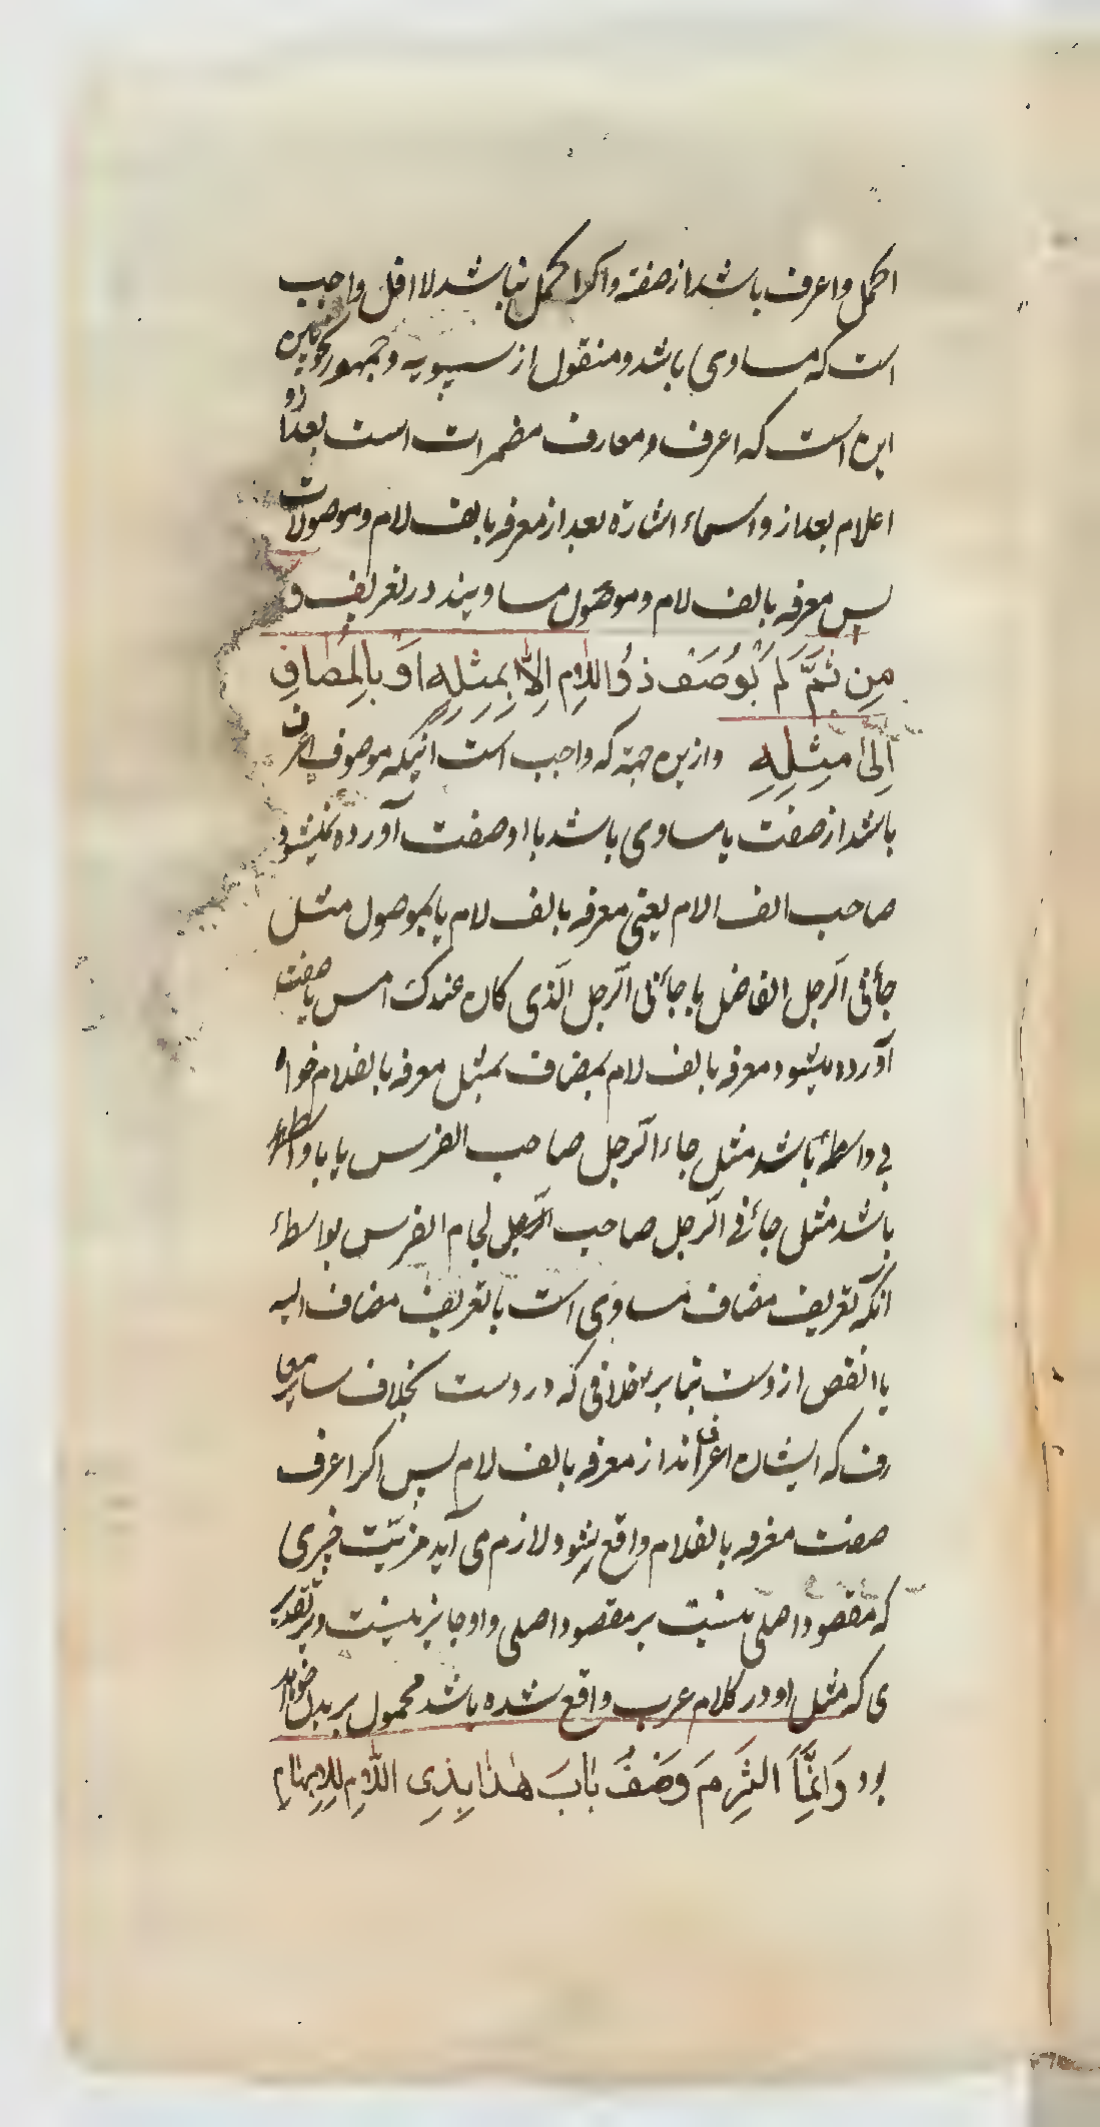 اکمل واعرف باشد از صفة واکر اکمل نباشد لا اقل واجب
است که مساوی باشد ومنقول از سیبویه وجمهور نحویین
این است که اعرف ومعارف مضمرات است بعد از او
اعلام بعد از و اسماء اشارة بعد از معرفه بالف لام وموصولات
پس معرفه بالف لام وموصول مساویند در تعریف و
مِن ثَمَّ لَم یُوصَف ذُو اللّامِ اِلّا بِمِثلِهِ اَو بِالمُضافِ
اِلیٰ مِثلِهِ واز این جهة که واجب است اینکه موصوف اعرف
باشد از صفت یا مساوی باشد با او صفت آورده نمیشود
صاحب الف الام یعنی معرفه بالف لام یا بموصول مثل
جائنی الرّجل الفاضل یا جائنی الرّجل الّذی کان عندک امس یا صفت
آورده میشود معرفه بالف لام بمضاف بمثل معرفه بالفلام خواه
بی واسطهٔ باشد مثل جاء الرّجل صاحب الفرس یا با واسطهٔ
باشد مثل جائنی الرّجل صاحب لجام الفرس بواسطهٔ
انکه تعریف مضاف مساوی است با تعریف مضاف الیه
یا انقص از وست بنا بر خلافی که در وست بخلاف سایر معا
رف که ایشان اعرف اند از معرفه بالف لام پس اکر اعرف
صفت معرفه بالفلام واقع بشود لازم می آید مزیّت چیزی
که مقصود اصلی نیست بر مقصود اصلی واو جایز نیست وبر تقدیر
ی که مثل او در کلام عرب واقع شده باشد محمول بر بدل خواهد
بود وَاِنَّما التُزِمَ وَصفُ بابَ هٰذا بِذِی اللّامِ لِلاِبهامِ